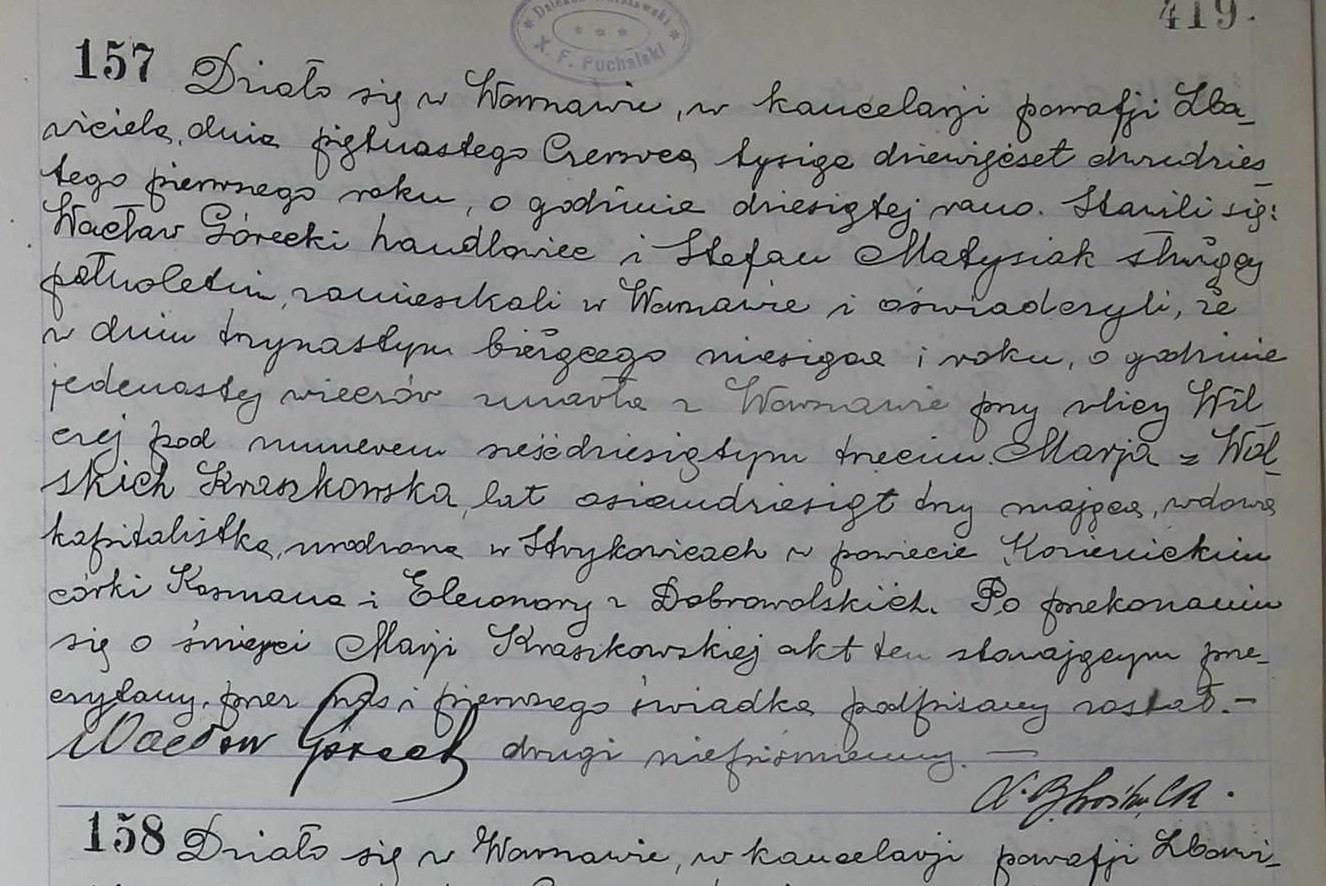 419.
Dziekan Warszawski
X. F. Puchalski
157 Działo się w Warszawie, w kancelarji parafji Zba_
wiciela, dnia piętnastego Czerwca tysiąc dziewięćset dwudzies_
tego pierwszego roku, o godzinie dziesiątej rano. Stawili się:
Wacław Górecki handlowiec i Stefan Matysiak służący
pełnoletni, zamieszkali w Warszawie i oświadczyli, że
w dniu trzynastym bieżącego miesiąca i roku, o godzinie
jedenastej wieczór zmarła w Warszawie przy ulicy Wil
czej pod numerem sześćdziesiątym trzecim. Marja z Wol_
skich Kraszkowska, lat osiemdziesiąt trzy mająca, wdowa
kapitalistka, urodzona w Strykowicach w powiecie Kozienickim
córki Kosmana i Eleonory z Dobrowolskich. Po przekonaniu
się o śmierci Marji Kraszkowskiej akt ten stawającym prze_
czytany, przez nas i pierwszego świadka podpisany został.—
Wacław Górecki drugi niepiśmienny. —
158 Działo się w Warszawie, w kancelarji parafji Zbawi_